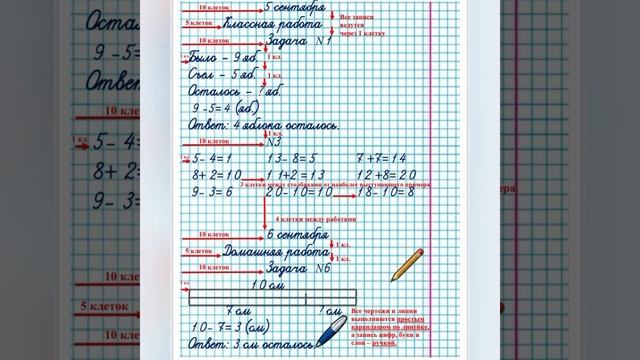 10 клеток 5 сентября
5 клеток Классная работа
Все записи ведутся через 1 клетку
10 клеток Задача N1
Было - 9 яб. 1 кл.
Съел - 5 яб. 1 кл.
Осталось - ? яб.
9-5=4 (яб.)
Ответ: 4 яблока осталось.
1 кл.
10 клеток N3
5-4=1 13-8=5 7+7=14
8+2=10 11+2=13 12+8=20
3 клетки между столбиками от наиболее выступающего примера
9-3=6 20-10=10 18-10=8
4 клетки между работами
10 клеток 6 сентября
1 кл.
5 клеток Домашняя работа
1 кл.
10 клеток Задача N6
10 см
7 см ? см
Все чертежи и линии выполняются простым карандашом по линейке, а запись цифр, букв и слов – ручкой.
10-7=3 (см)
Ответ: 3 см осталось
Оста
9-5=
Ответ
10 клеток
1 кл.
5-4=
8+2=
9-3=
10 клеток
5 клеток
10 клеток